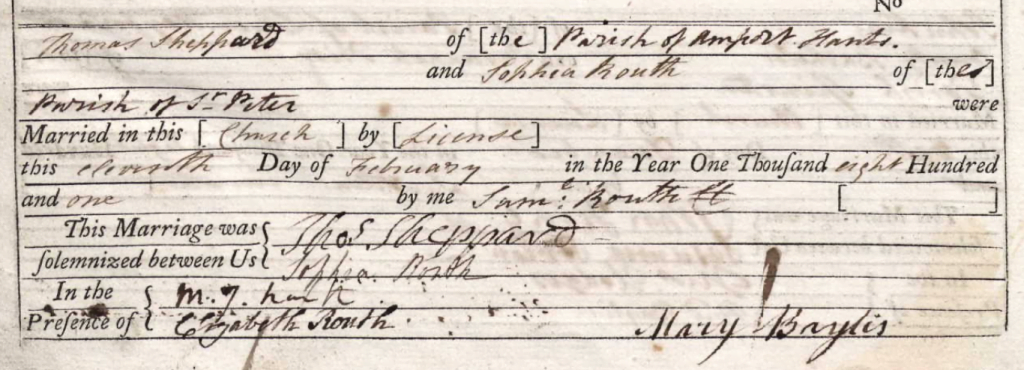 No
Thomas Sheppard of [the] Parish of Amport Hants.
and Sophia Routh of [the]
Parish of St. Peter were
Married in this [Church] by [License]
this eleventh Day of February in the Year One Thouſand eight Hundred
and one by me Saml. Routh [ ]
This Marriage was Thos Sheppard
ſolemnized between Us Sophia Routh
In the M. J.
Preſence of Elizabeth Routh Mary Baylis